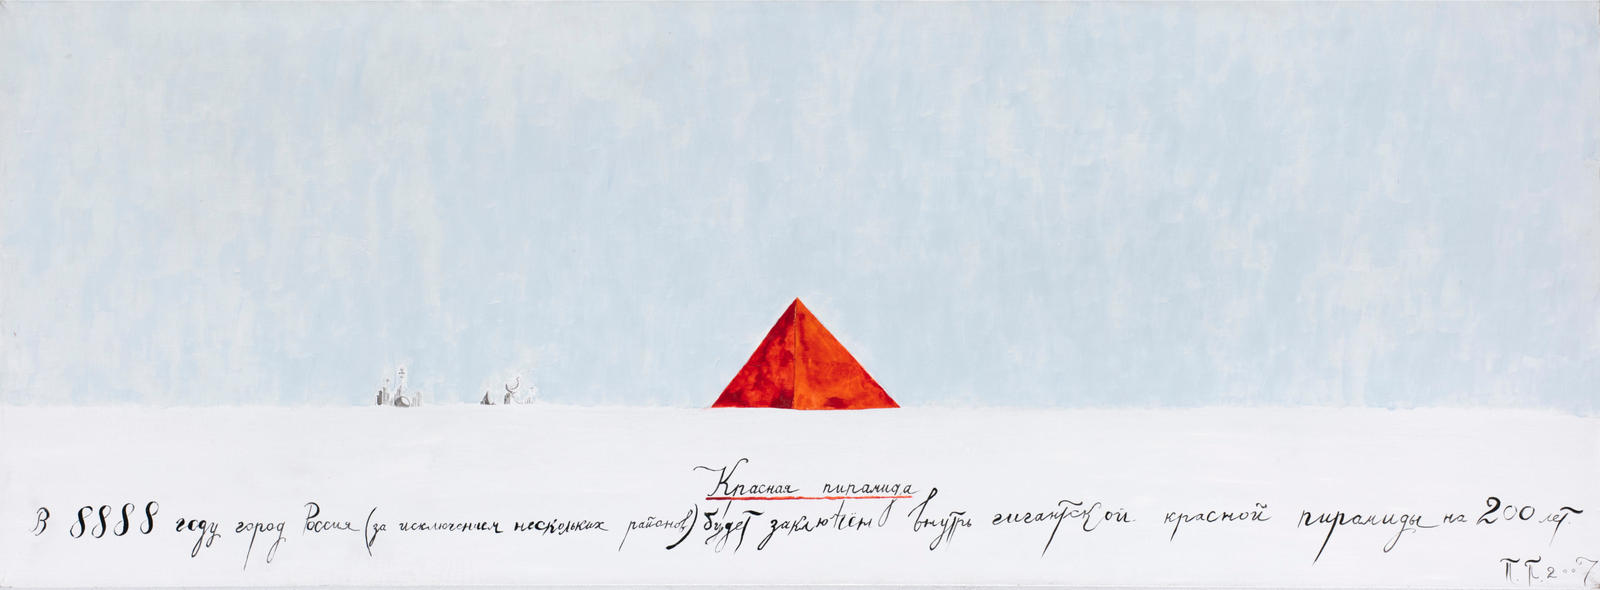 Красная пирамида
В 8888 году город Россия (за исключением нескольких районов) будет заключён внутрь гигантской красной пирамиды на 200 лет.
П.П. 2007